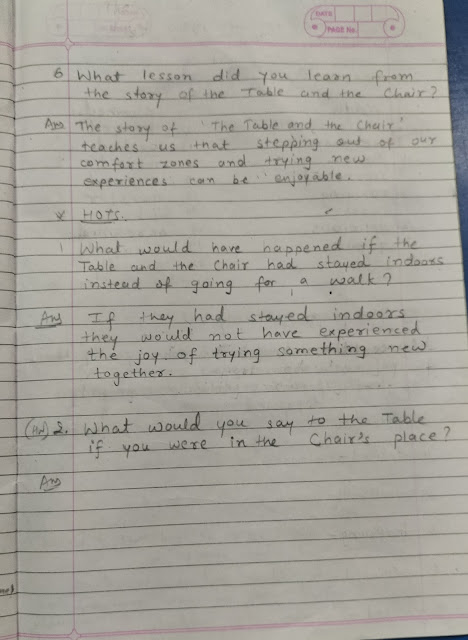 DATE
PAGE No.
6 What lesson did you learn from
the story of the Table and the Chair?
Ans The story of 'The Table and the Chair'
teaches us that stepping out of our
comfort zones and trying new
experiences can be enjoyable.
* HOTS.
1 What would have happened if the
Table and the Chair had stayed indoors
instead of going for a walk?
Ans If they had stayed indoors
they would not have experienced
the joy of trying something new
together.
(HW) 2. What would you say to the Table
if you were in the Chair's place?
Ans